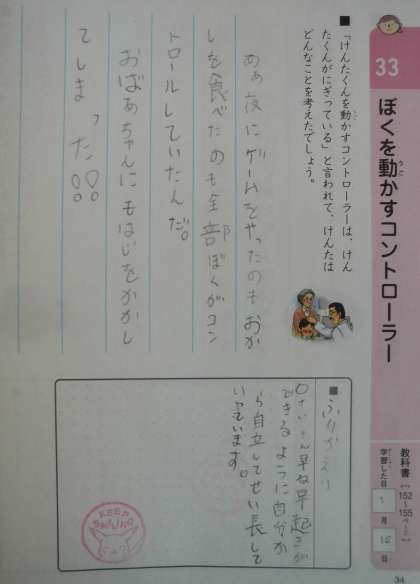 33
ぼくを動かすコントローラー
■「けんたくんを動かすコントローラーは、けん
たくんがにぎっている」と言われて、けんたは
どんなことを考えたでしょう。
あぁ夜にゲームをやったのもおか
しを食べたのも全部ぼくがコン
トロールしていたんだ。
おばあちゃんにもはじをかかし
てしまった!!
教科書【152〜155ページ】
学習した日 月 日
■ふりかえり
早ね早起きが
できるように自分か
ら自立してせい長して
いっています。
KEEP